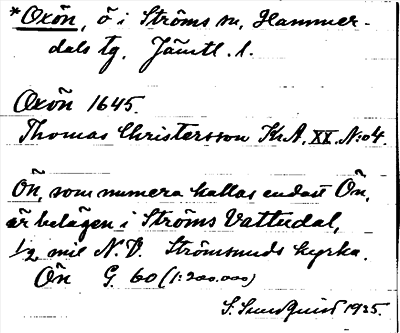 *Oxön, ö i Ströms sn, Hammer-
dals tg. Jämtl. l.
Oxön 1645.
Thomas Christersson KrA, XX. No 4.
Ön, som numera kallas endast Ön,
är belägen i Ströms Vattudal,
1/2 mil N.V. Strömsunds kyrka.
Ön G. 60 (1:200.000)
S. Sundquist 1925.